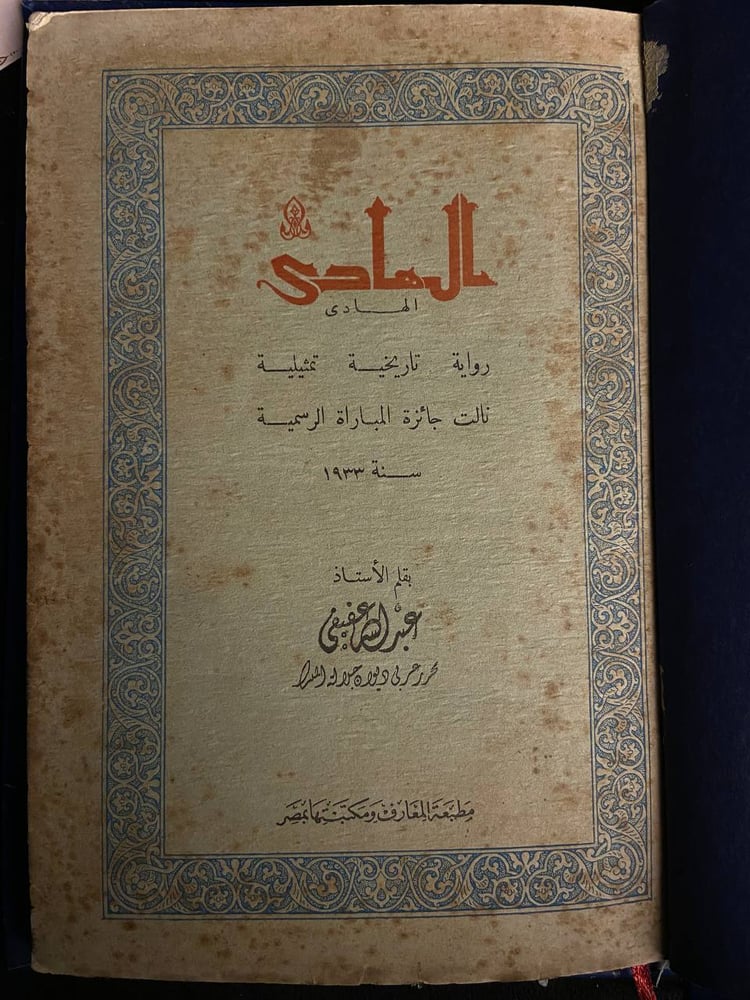 الهادى
الهادى
رواية تاريخية تمثيلية
نالت جائزة المباراة الرسمية
سنة ١٩٣٣
بقلم الأستاذ
عبد الله عفيفى
محرر عربى ديوان جلالة الملك
مطبعة المعارف ومكتبتها بمصر